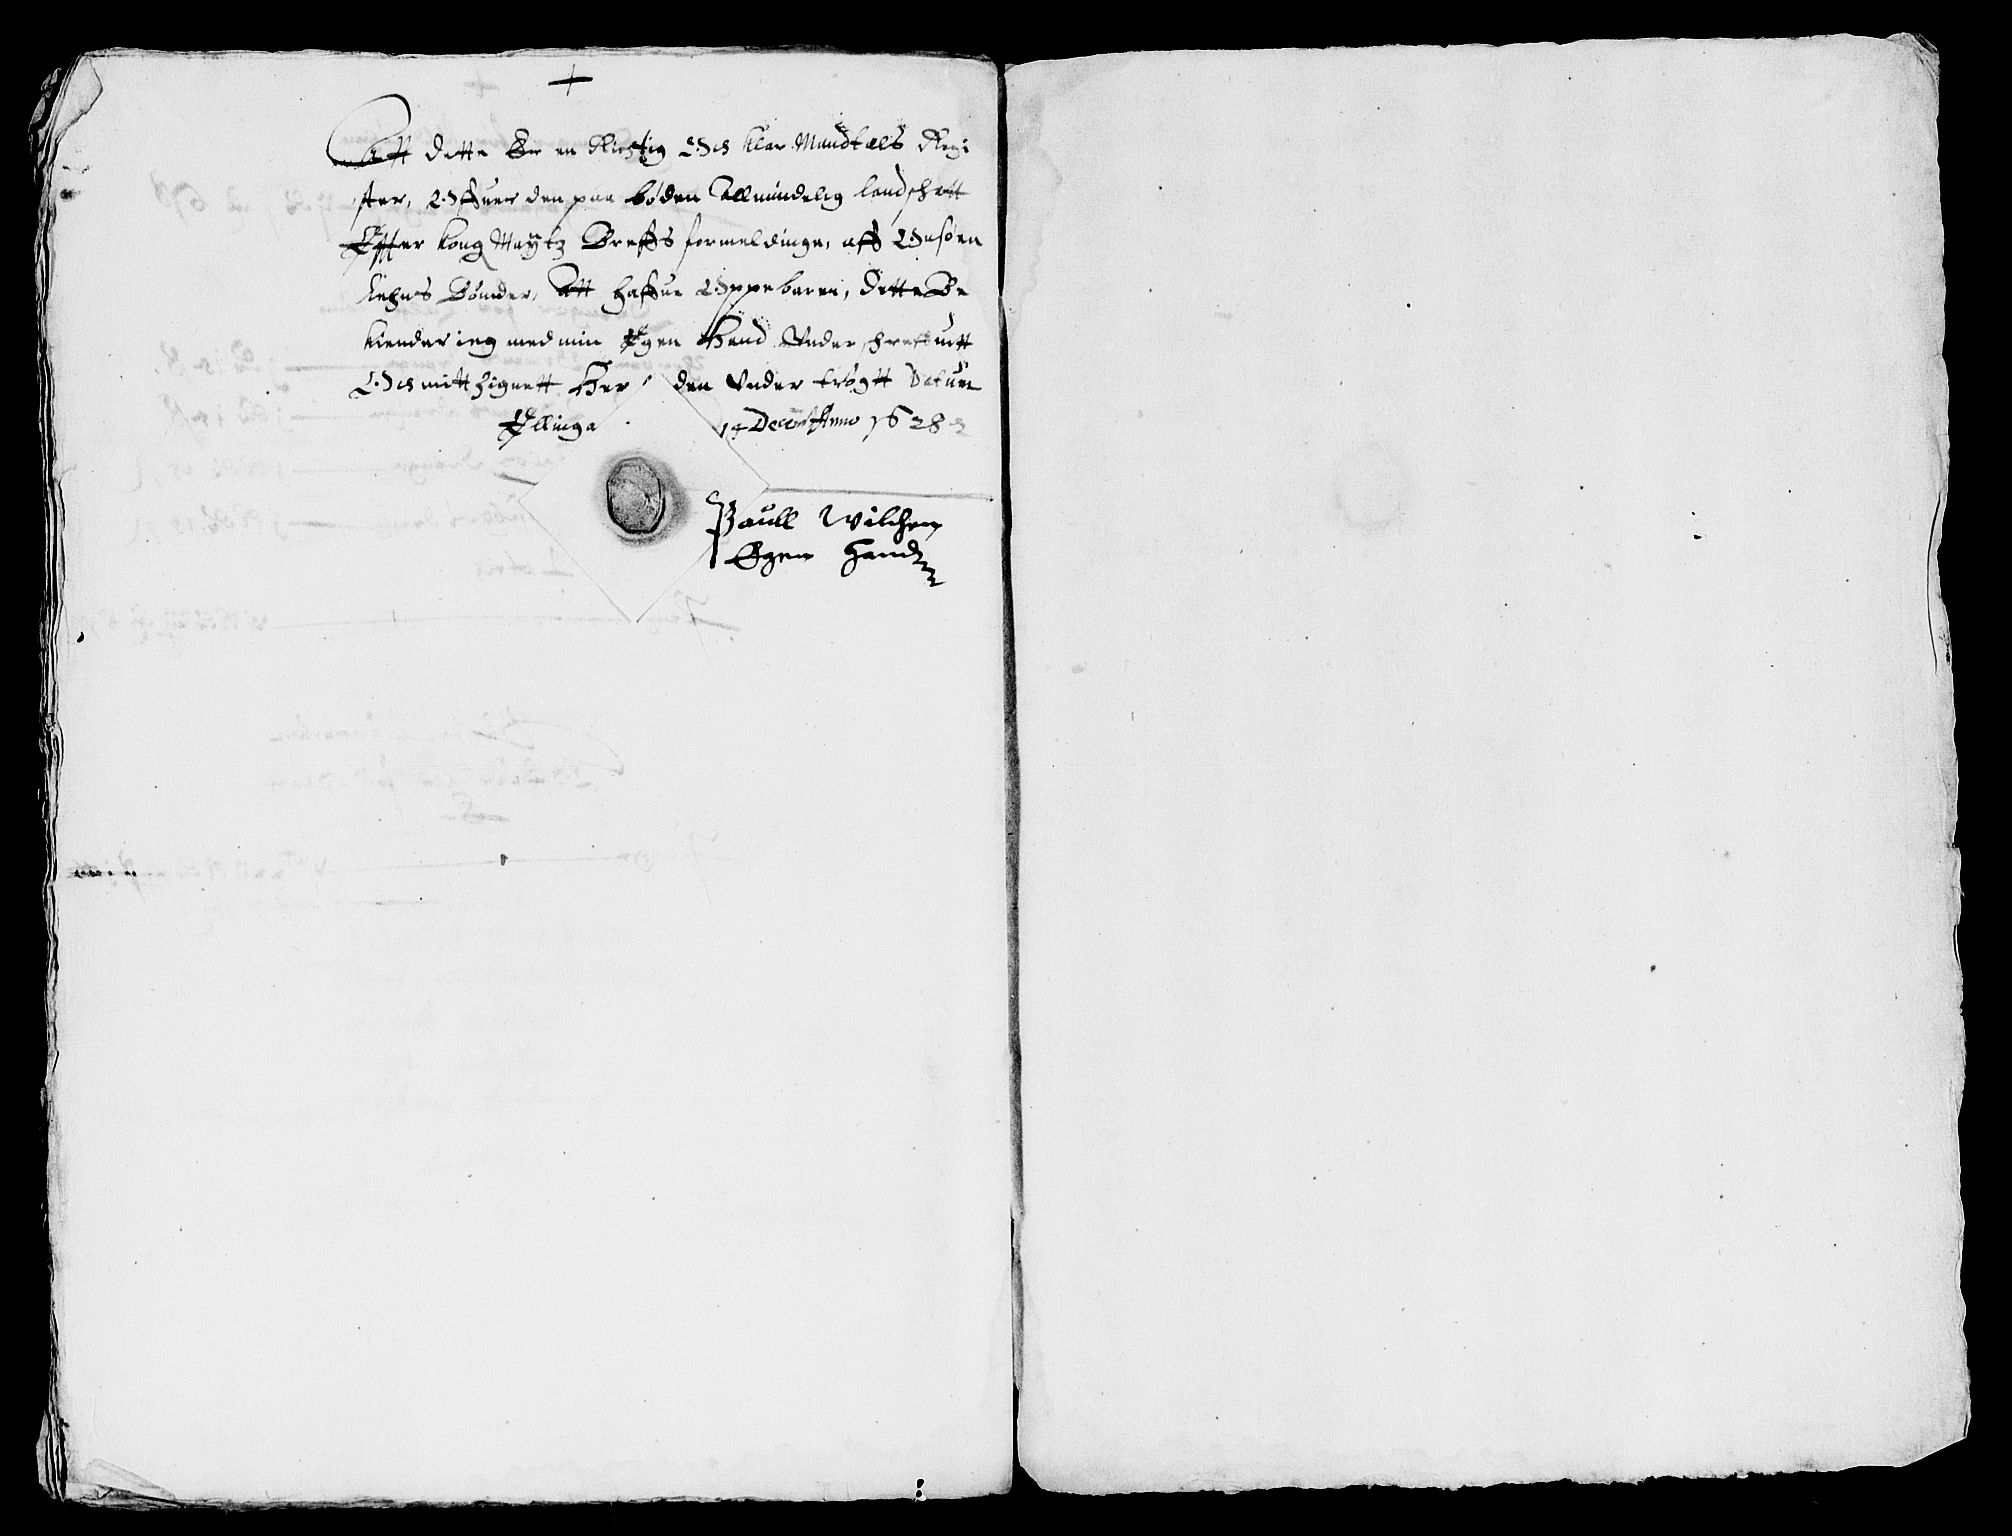 Att dette Er en Richtig Och klar Mandtals Regi
ster, Offuer den paa bøden Allmindelig landschatt
Effter kong Maytz Breffs formeldinge, aff Onsøen
Lehns Bønder, Att haffue Oppebaren, dette Be
kiender ieg med min Egen Hand Vnderschreffuitt
Och mitt Zignett Her den Vnder trøgtt Datum
Ellinga 14 Decemb Anno 1628
Pauell Wilchen
Egen Hand